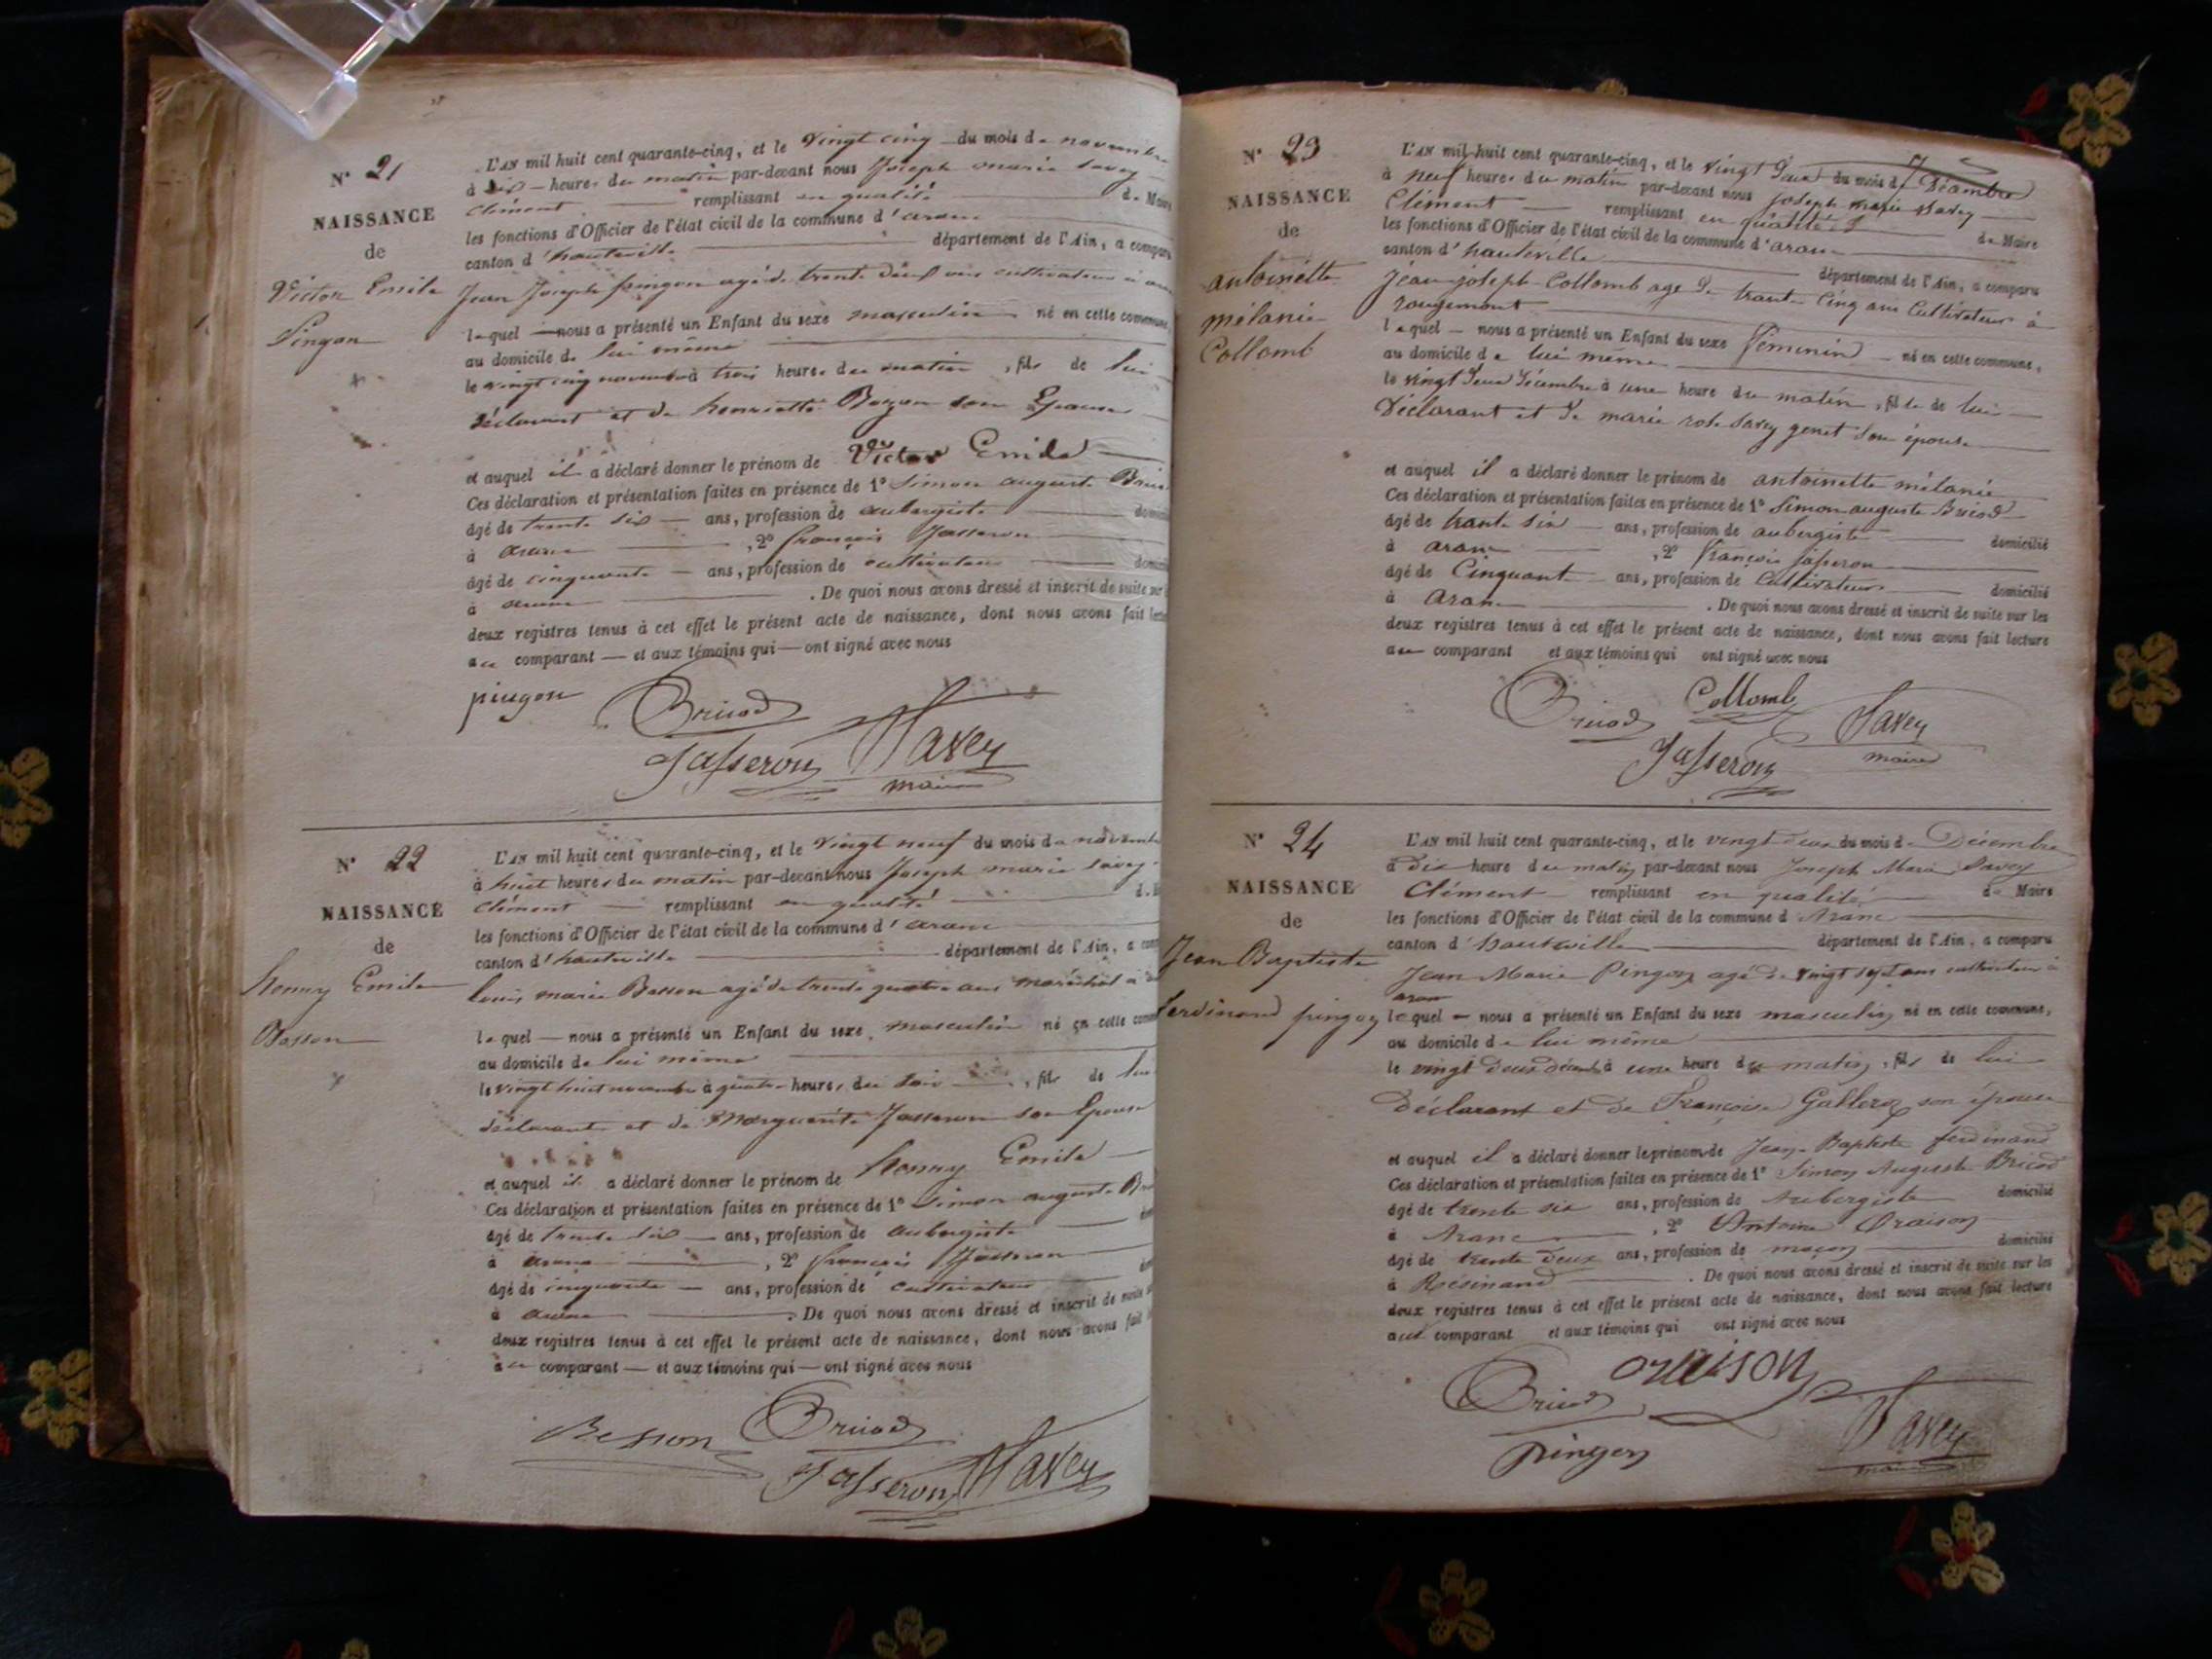 N° 21
NAISSANCE
de
Victor Emile
Pingon
L'AN mil huit cent quarante-cinq, et le vingt cinq du mois de novembre
à dix heures du matin par-devant nous Joseph marie Savey
Clément remplissant en qualité de Maire
les fonctions d'Officier de l'état civil de la commune d'aranc
canton d'hauteville département de l'Ain, a comparu
Jean Joseph pingon agé de trente deux ans cultivateur à
lequel nous a présenté un Enfant du sexe masculin né en cette commune,
au domicile de lui même
le vingt cinq novembre à trois heures du matin, fils de lui
déclarant et de henriette son Epouse
et auquel il a déclaré donner le prénom de Victor Emile
Ces déclaration et présentation faites en présence de 1° Simon auguste
agé de trente six ans, profession de aubergiste
à aranc , 2° françois Jasseron
agé de cinquante ans, profession de cultivateur
à aranc . De quoi nous avons dressé et inscrit de suite sur
deux registres tenus à cet effet le présent acte de naissance, dont nous avons fait
au comparant et aux témoins qui ont signé avec nous
pingon Bricod
Jasseron Savey
maire
N° 22
NAISSANCE
de
henry Emile
Besson
L'AN mil huit cent quarante-cinq, et le vingt neuf du mois de novembre
à huit heures du matin par-devant nous Joseph marie Savey
Clément remplissant en qualité
les fonctions d'Officier de l'état civil de la commune d'aranc
canton d'hauteville département de l'Ain, a
louis marie Besson agé de trente quatre ans maréchal à
lequel nous a présenté un Enfant du sexe masculin né en cette
au domicile de lui même
le vingt huit novembre à quatre heures du soir, fils de lui
déclarant et de Marguerite Jasseron son Epouse
et auquel il a déclaré donner le prénom de henry Emile
Ces déclaration et présentation faites en présence de 1° Simon auguste
agé de trente six ans, profession de aubergiste
à aranc , 2° françois Jasseron
agé de cinquante ans, profession de cultivateur
à aranc . De quoi nous avons dressé et inscrit de suite
deux registres tenus à cet effet le présent acte de naissance, dont nous avons fait
au comparant et aux témoins qui ont signé avec nous
Besson Bricod
Jasseron Savey
N° 23
NAISSANCE
de
antoinette
mélanie
Collomb
L'AN mil huit cent quarante-cinq, et le vingt deux du mois de Décembre
à neuf heures du matin par-devant nous joseph marie Savey
Clément remplissant en qualité de Maire
les fonctions d'Officier de l'état civil de la commune d'aranc
canton d'hauteville département de l'Ain, a comparu
jean joseph Collomb age de trante Cinq ans Cultivateur à
rougemont
lequel nous a présenté un Enfant du sexe féminin né en cette commune,
au domicile de lui même
le vingt deux décembre à une heure du matin, fille de lui
Déclarant et de marie rose Savey genet son épouse
et auquel il a déclaré donner le prénom de antoinette mélanie
Ces déclaration et présentation faites en présence de 1° Simon auguste Bricod
agé de trante six ans, profession de aubergiste domicilié
à aranc , 2° françois jasseron
agé de Cinquante ans, profession de Cultivateur domicilié
à aranc . De quoi nous avons dressé et inscrit de suite sur les
deux registres tenus à cet effet le présent acte de naissance, dont nous avons fait lecture
au comparant et aux témoins qui ont signé avec nous
Bricod Collomb Savey
Jasseron maire
N° 24
NAISSANCE
de
Jean Baptiste
ferdinand pingon
L'AN mil huit cent quarante-cinq, et le vingt deux du mois de Décembre
à dix heure du matin par-devant nous Joseph Marie Savey
Clément remplissant en qualité de Maire
les fonctions d'Officier de l'état civil de la commune d'Aranc
canton d'hauteville département de l'Ain, a comparu
Jean Marie Pingon agé de vingt sept ans cultivateur à
aranc
lequel nous a présenté un Enfant du sexe masculin né en cette commune,
au domicile de lui même
le vingt deux décembre à une heure du matin, fils de lui
Déclarant et de Françoise son épouse
et auquel il a déclaré donner le prénom de Jean-Baptiste ferdinand
Ces déclaration et présentation faites en présence de 1° Simon Auguste Bricod
agé de trente six ans, profession de Aubergiste domicilié
à Aranc , 2° Antoine Oraison
agé de trente deux ans, profession de maçon domicilié
à Résinand . De quoi nous avons dressé et inscrit de suite sur les
deux registres tenus à cet effet le présent acte de naissance, dont nous avons fait lecture
aux comparant et aux témoins qui ont signé avec nous
oraison
Bricod Savey
pingon maire